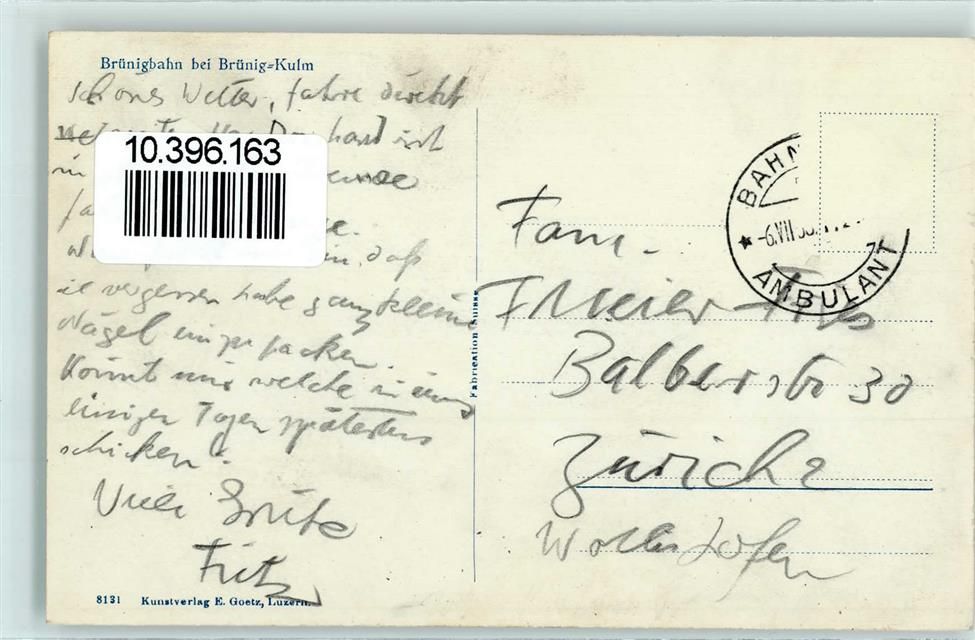 Brünigbahn bei Brünig=Kulm
schönes Wetter, fahre direkt
ist
in
fa
daß
ich vergessen habe ganz kleine
Nägel einzupacken.
Könnt mir welche in
einigen Tagen spätestens
schicken.
Viele Grüße
Fritz
8131 Kunstverlag E. Goetz, Luzern.
10.396.163
Fabrication Suisse
BAHN
-6.VII
AMBULANT
Fam.
Meier
Balberstr 30
Zürich 2
Wollishofen